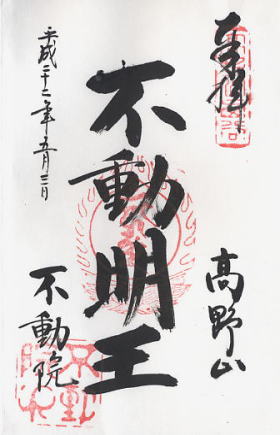 奉拝
高野山
不動明王
平成二十二年五月三日
不動院